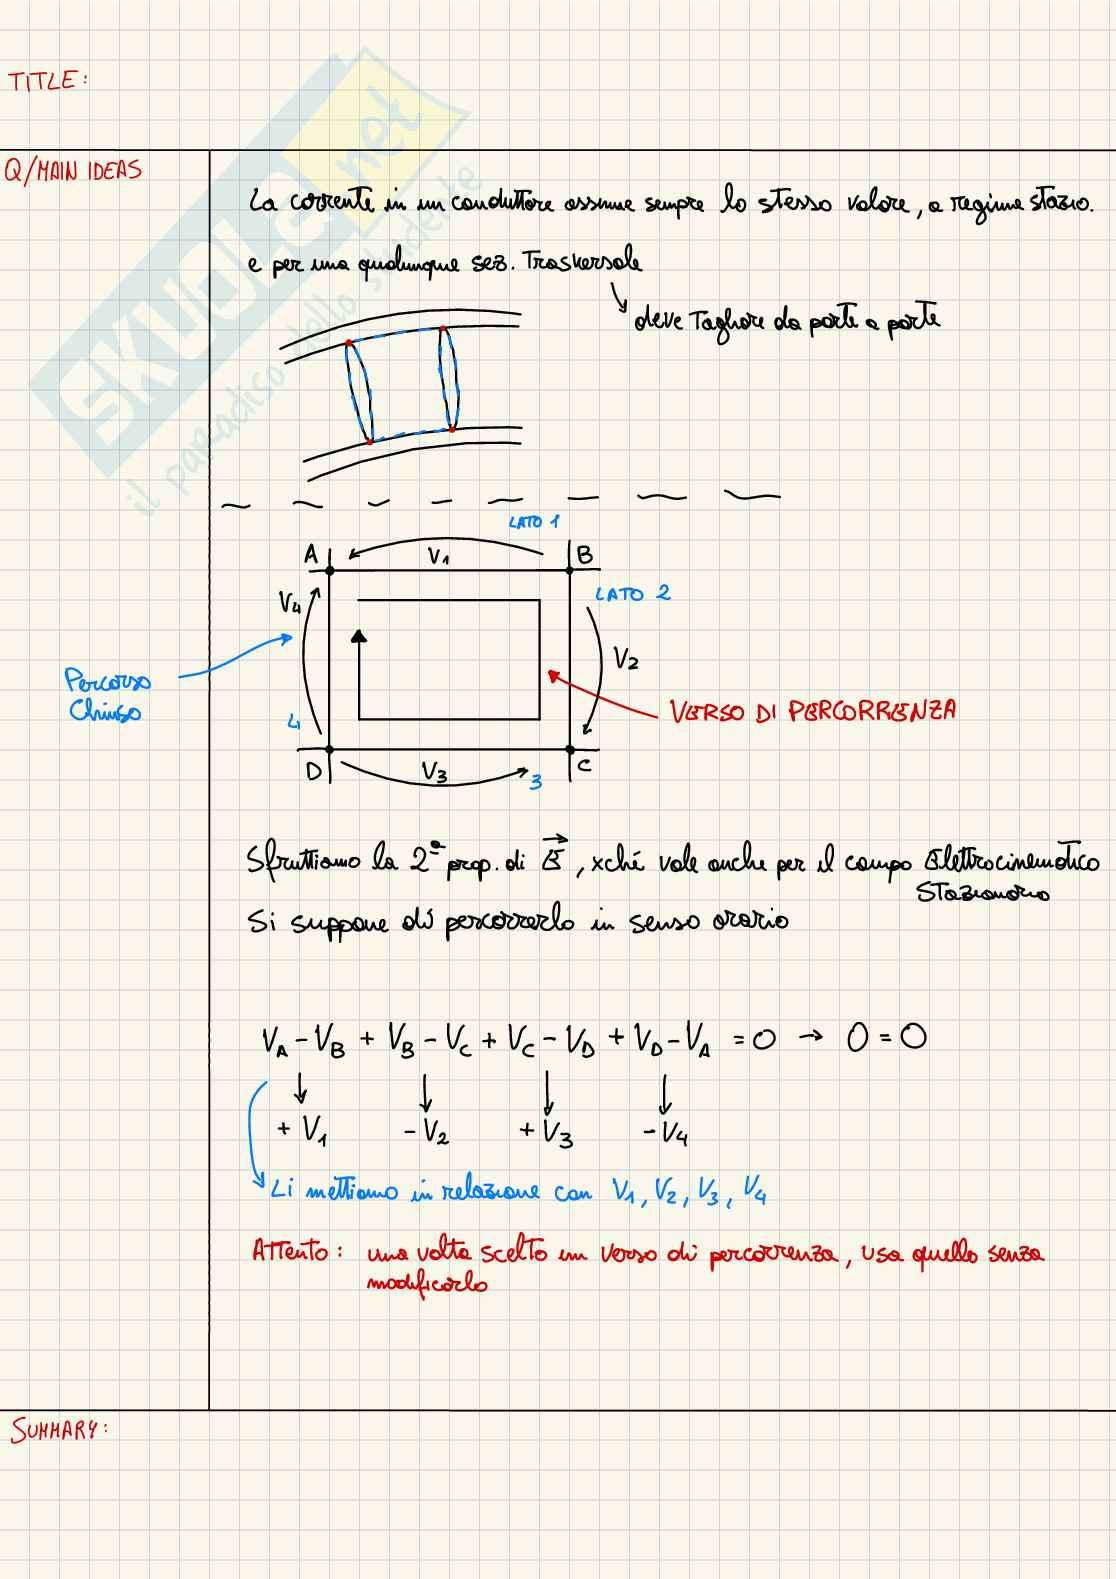 TITLE:
Q/MAIN IDEAS
La corrente in un conduttore assume sempre lo stesso valore, a regime stazio.
e per una qualunque sez. Trasversale
deve Tagliare da parte a parte
SKUOLA.net
il paradiso dello studente
LATO 1
A V1 B
V4 LATO 2
V2
Percorso
Chiuso
VERSO DI PERCORRENZA
4
D V3 3 C
Sfruttiamo la 2ª prop. di E, xché vale anche per il campo Elettrocinematico
Stazionario
Si suppone di percorrerlo in senso orario
VA - VB + VB - VC + VC - VD + VD - VA = 0 → 0 = 0
+ V1 - V2 + V3 - V4
Li mettiamo in relazione con V1, V2, V3, V4
Attento: una volta scelto un verso di percorrenza, usa quello senza
modificarlo
SUMMARY: